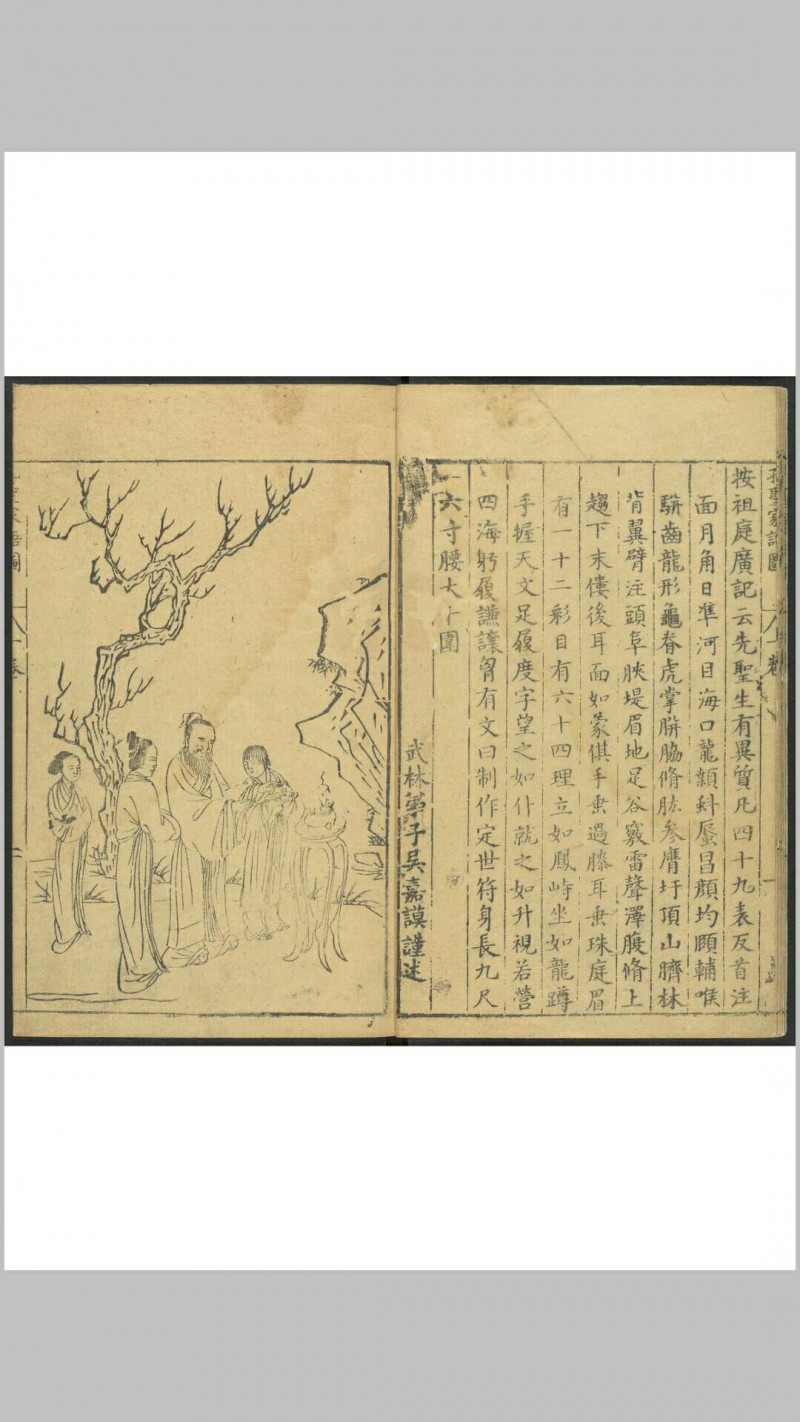 孔聖家語圖 一卷 一
按祖庭廣記云先聖生有異質凡四十九表反首注
面月角日準河目海口龍顙斗脣昌顏均頤輔喉
駢齒龍形龜脊虎掌胼脇脩肱參膺圩頂山臍林
背翼臂注頭阜脥堤眉地足谷竅雷聲澤腹脩上
趨下末僂後耳面如蒙倛手垂過膝耳垂珠庭眉
有一十二彩目有六十四理立如鳳峙坐如龍蹲
手握天文足履度字望之如仆就之如升視若營
四海躬履謙讓胷有文曰制作定世符身長九尺
六寸腰大十圍
武林弟子吳嘉謨謹述
家語圖 一卷